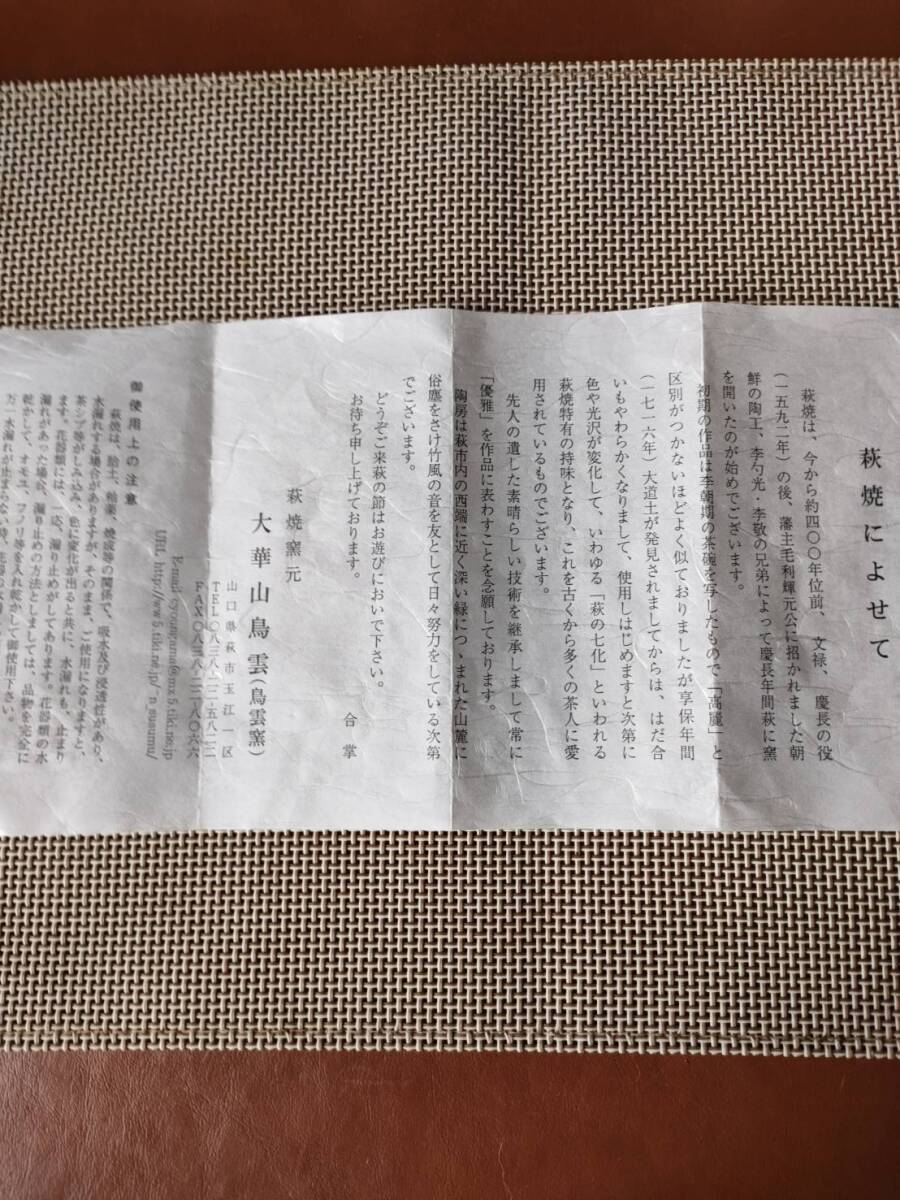 萩焼によせて
萩焼は、今から約四〇〇年位前、文禄、慶長の役
(一五九二年)の後、藩主毛利輝元公に招かれました朝
鮮の陶工、李勺光・李敬の兄弟によって慶長年間萩に窯
を開いたのが始めでございます。
初期の作品は李朝期の茶碗を写したもので「高麗」と
区別がつかないほどよく似ておりましたが享保年間
(一七一六年)大道土が発見されましてからは、はだ合
いもやわらかくなりまして、使用しはじめますと次第に
色や光沢が変化して、いわゆる「萩の七化」といわれる
萩焼特有の持味となり、これを古くから多くの茶人に愛
用されているものでございます。
先人の遺した素晴らしい技術を継承しまして常に
「優雅」を作品に表わすことを念願しております。
陶房は萩市内の西端に近く深い緑につゝまれた山麓に
俗塵をさけ竹風の音を友として日々努力をしている次第
でございます。
どうぞご来萩の節はお遊びにおいで下さい。
お待ち申し上げております。
合掌
萩焼窯元
大華山鳥雲(鳥雲窯)
山口県萩市玉江一区
TEL〇八三八-二二-五八二二
FAX〇八三八-二二-八〇六六
URL http://ww5.tiki.ne.jp/~n-susumu/
御使用上の注意
萩焼は、胎土、釉薬、焼成等の関係で、吸水及び浸透性があり、
水漏れする場合がありますが、そのまま、ご使用になりますと、
茶シブ等がしみ込み、色に変化が出ると共に、水漏れも、止まり
ます。花器類には、一応、漏り止めがしてあります。花器類の水
漏れがあった場合、漏り止めの方法としましては、品物を完全に
乾かして、オモユ、フノリ等を入れ乾かして御使用下さい。
万一水漏れが止まらない時、花器の